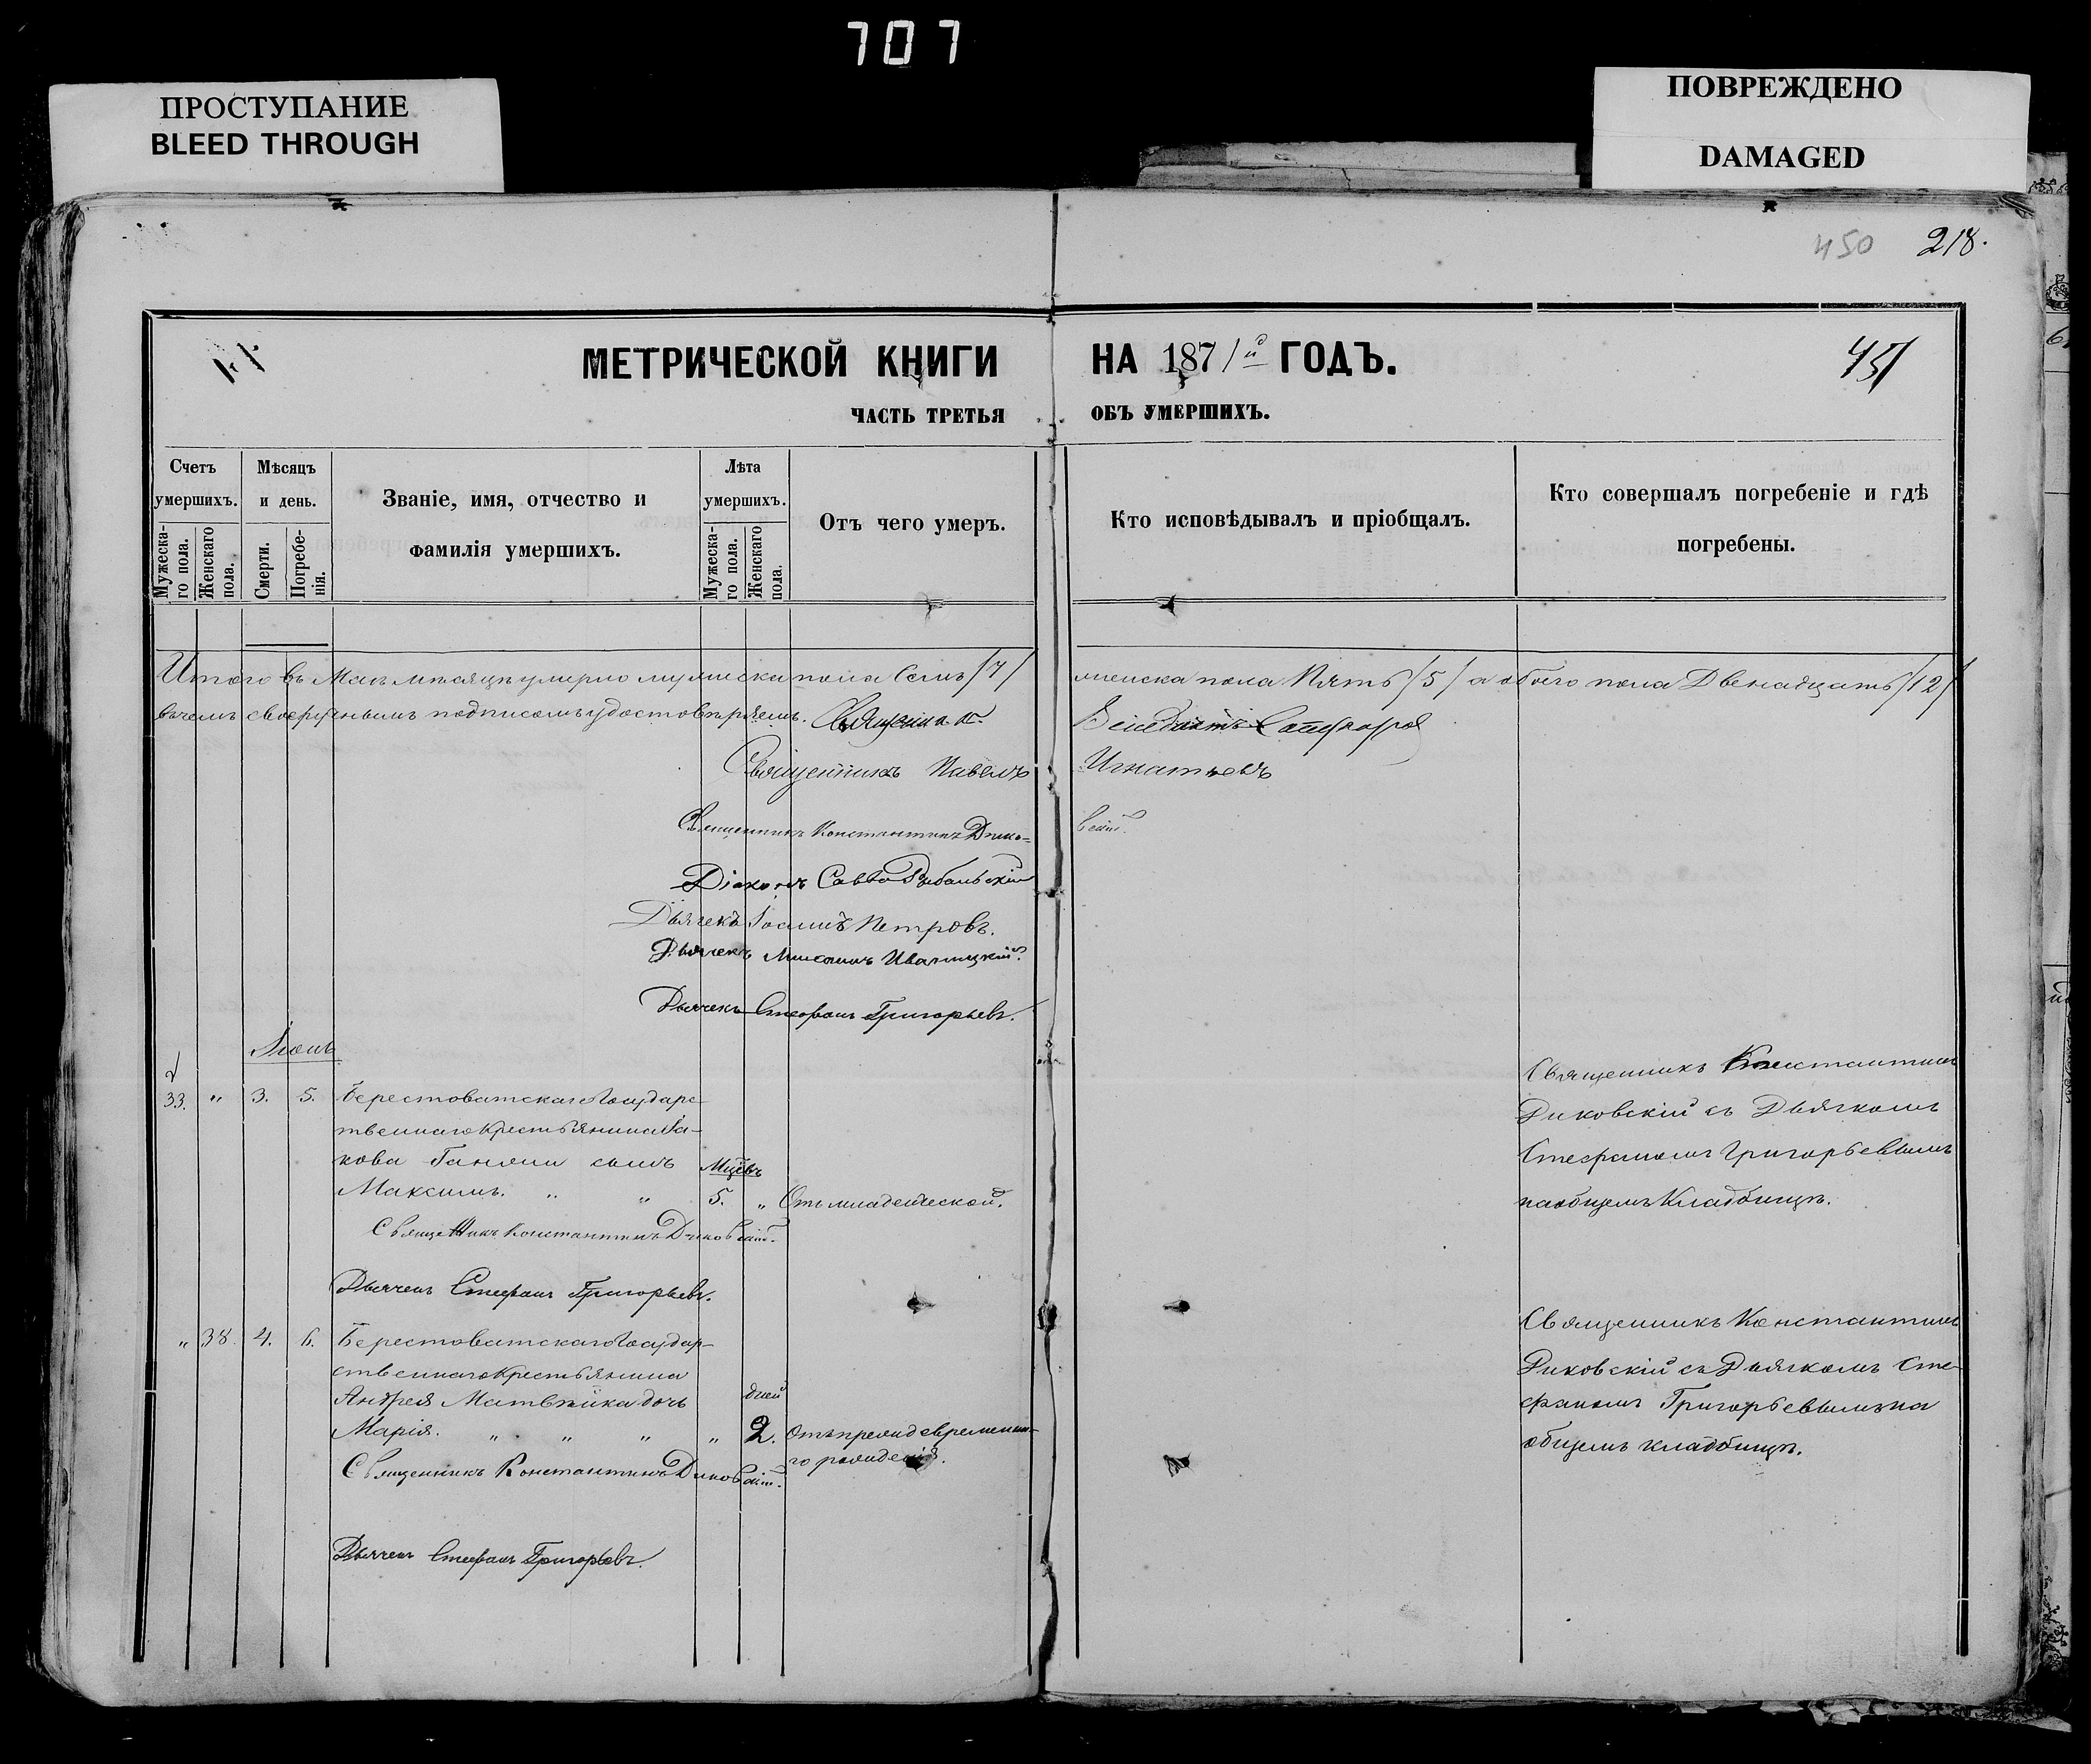 707
ПРОСТУПАНИЕ
BLEED THROUGH
ПОВРЕЖДЕНО
DAMAGED
450 218.
МЕТРИЧЕСКОЙ КНИГИ НА 1871й ГОДЪ.
451
ЧАСТЬ ТРЕТЬЯ ОБЪ УМЕРШИХЪ.
Счетъ умершихъ.
Мужеска-го пола.
Женскаго пола.
Мѣсяцъ и день.
Смерти.
Погребе-нія.
Званіе, имя, отчество и
фамилія умершихъ.
Лѣта умершихъ.
Мужеска-го пола.
Женскаго пола.
Отъ чего умеръ.
Кто исповѣдывалъ и пріобщалъ.
Кто совершалъ погребеніе и гдѣ
погребены.
Итого въ Маѣ мѣсяцѣ умерло мужеска пола Семь /7/ женска пола Пять /5/ а обоего пола Двенадцать /12/
вчемъ своеручнымъ подписомъ удостовѣряемъ. Священникъ
Священникъ Павелъ Игнатьевъ
Священникъ Константинъ Дико-
вскій.
Діаконъ Савва
Дьячекъ Іоаннъ Петровъ.
Дьячекъ Иваницкій.
Дьячекъ Стефанъ Григорьевъ.
Іюнь
33. " 3. 5. Берестоватскаго Государс-
твеннаго Крестьянина Іа-
кова Ганжи сынъ Мцевъ
Максимъ. " " 5. " Отъ младенческой.
Священникъ Константинъ Диковскій.
Дьячекъ Стефанъ Григорьевъ.
Священникъ Константинъ
Диковскій съ Дьячкомъ
Стефаномъ Григорьевымъ
на общемъ Кладбищѣ.
" 38. 4. 6. Берестоватскаго Государ-
ственнаго Крестьянина
Андрея Матвѣйка дочь дней
Марія. " " " " 2. Отъ преждевременна-
го рожденія.
Священникъ Константинъ Диковскій.
Дьячекъ Стефанъ Григорьевъ.
Священникъ Константинъ
Диковскій съ Дьячкомъ Сте-
фаномъ Григорьевымъ на
общемъ кладбищѣ.